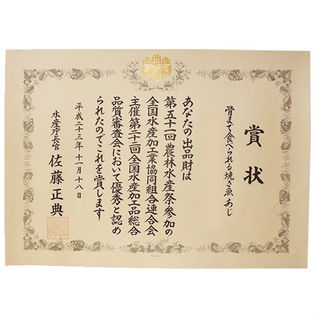 賞状
骨まで食べられる焼き魚 あじ
あなたの出品財は
第五十一回農林水産祭参加の
全国水産加工業協同組合連合会
主催第二十三回全国水産加工品総合
品質審査会において優秀と認め
られたのでこれを賞します
平成二十三年十一月十八日
水産庁長官 佐藤正典